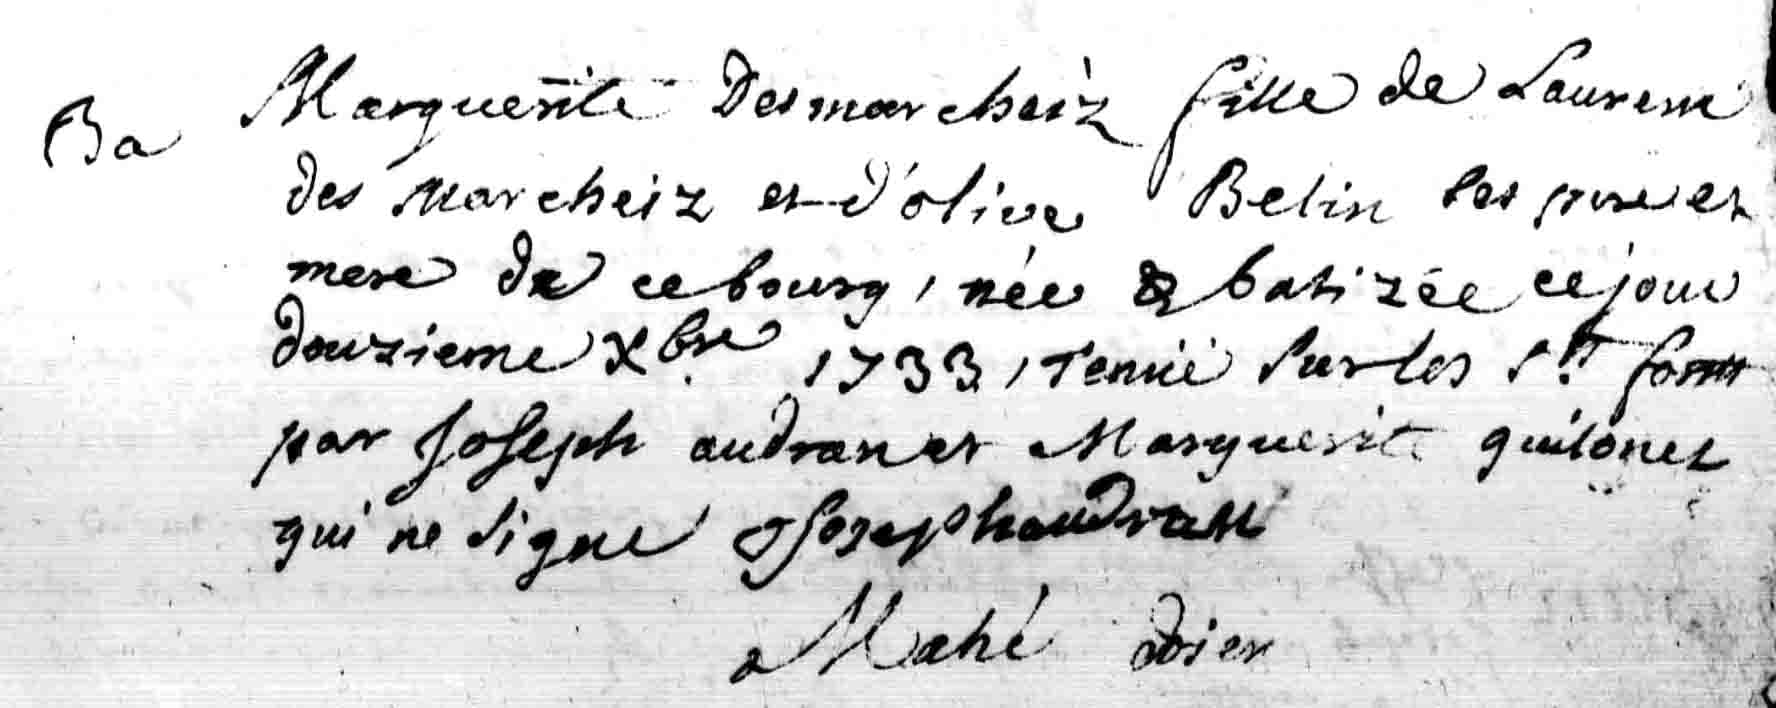 Ba Marguerite Desmarcheiz fille de Laurent
des Marcheiz et d'olive Belin ses pere et
mere de ce bourg, née & batizée ce jour
douzieme Xbre 1733, Tenüe sur les sts fons
par Joseph audran et Marguerite guilonet
qui ne signe Josephaudran
Mahé